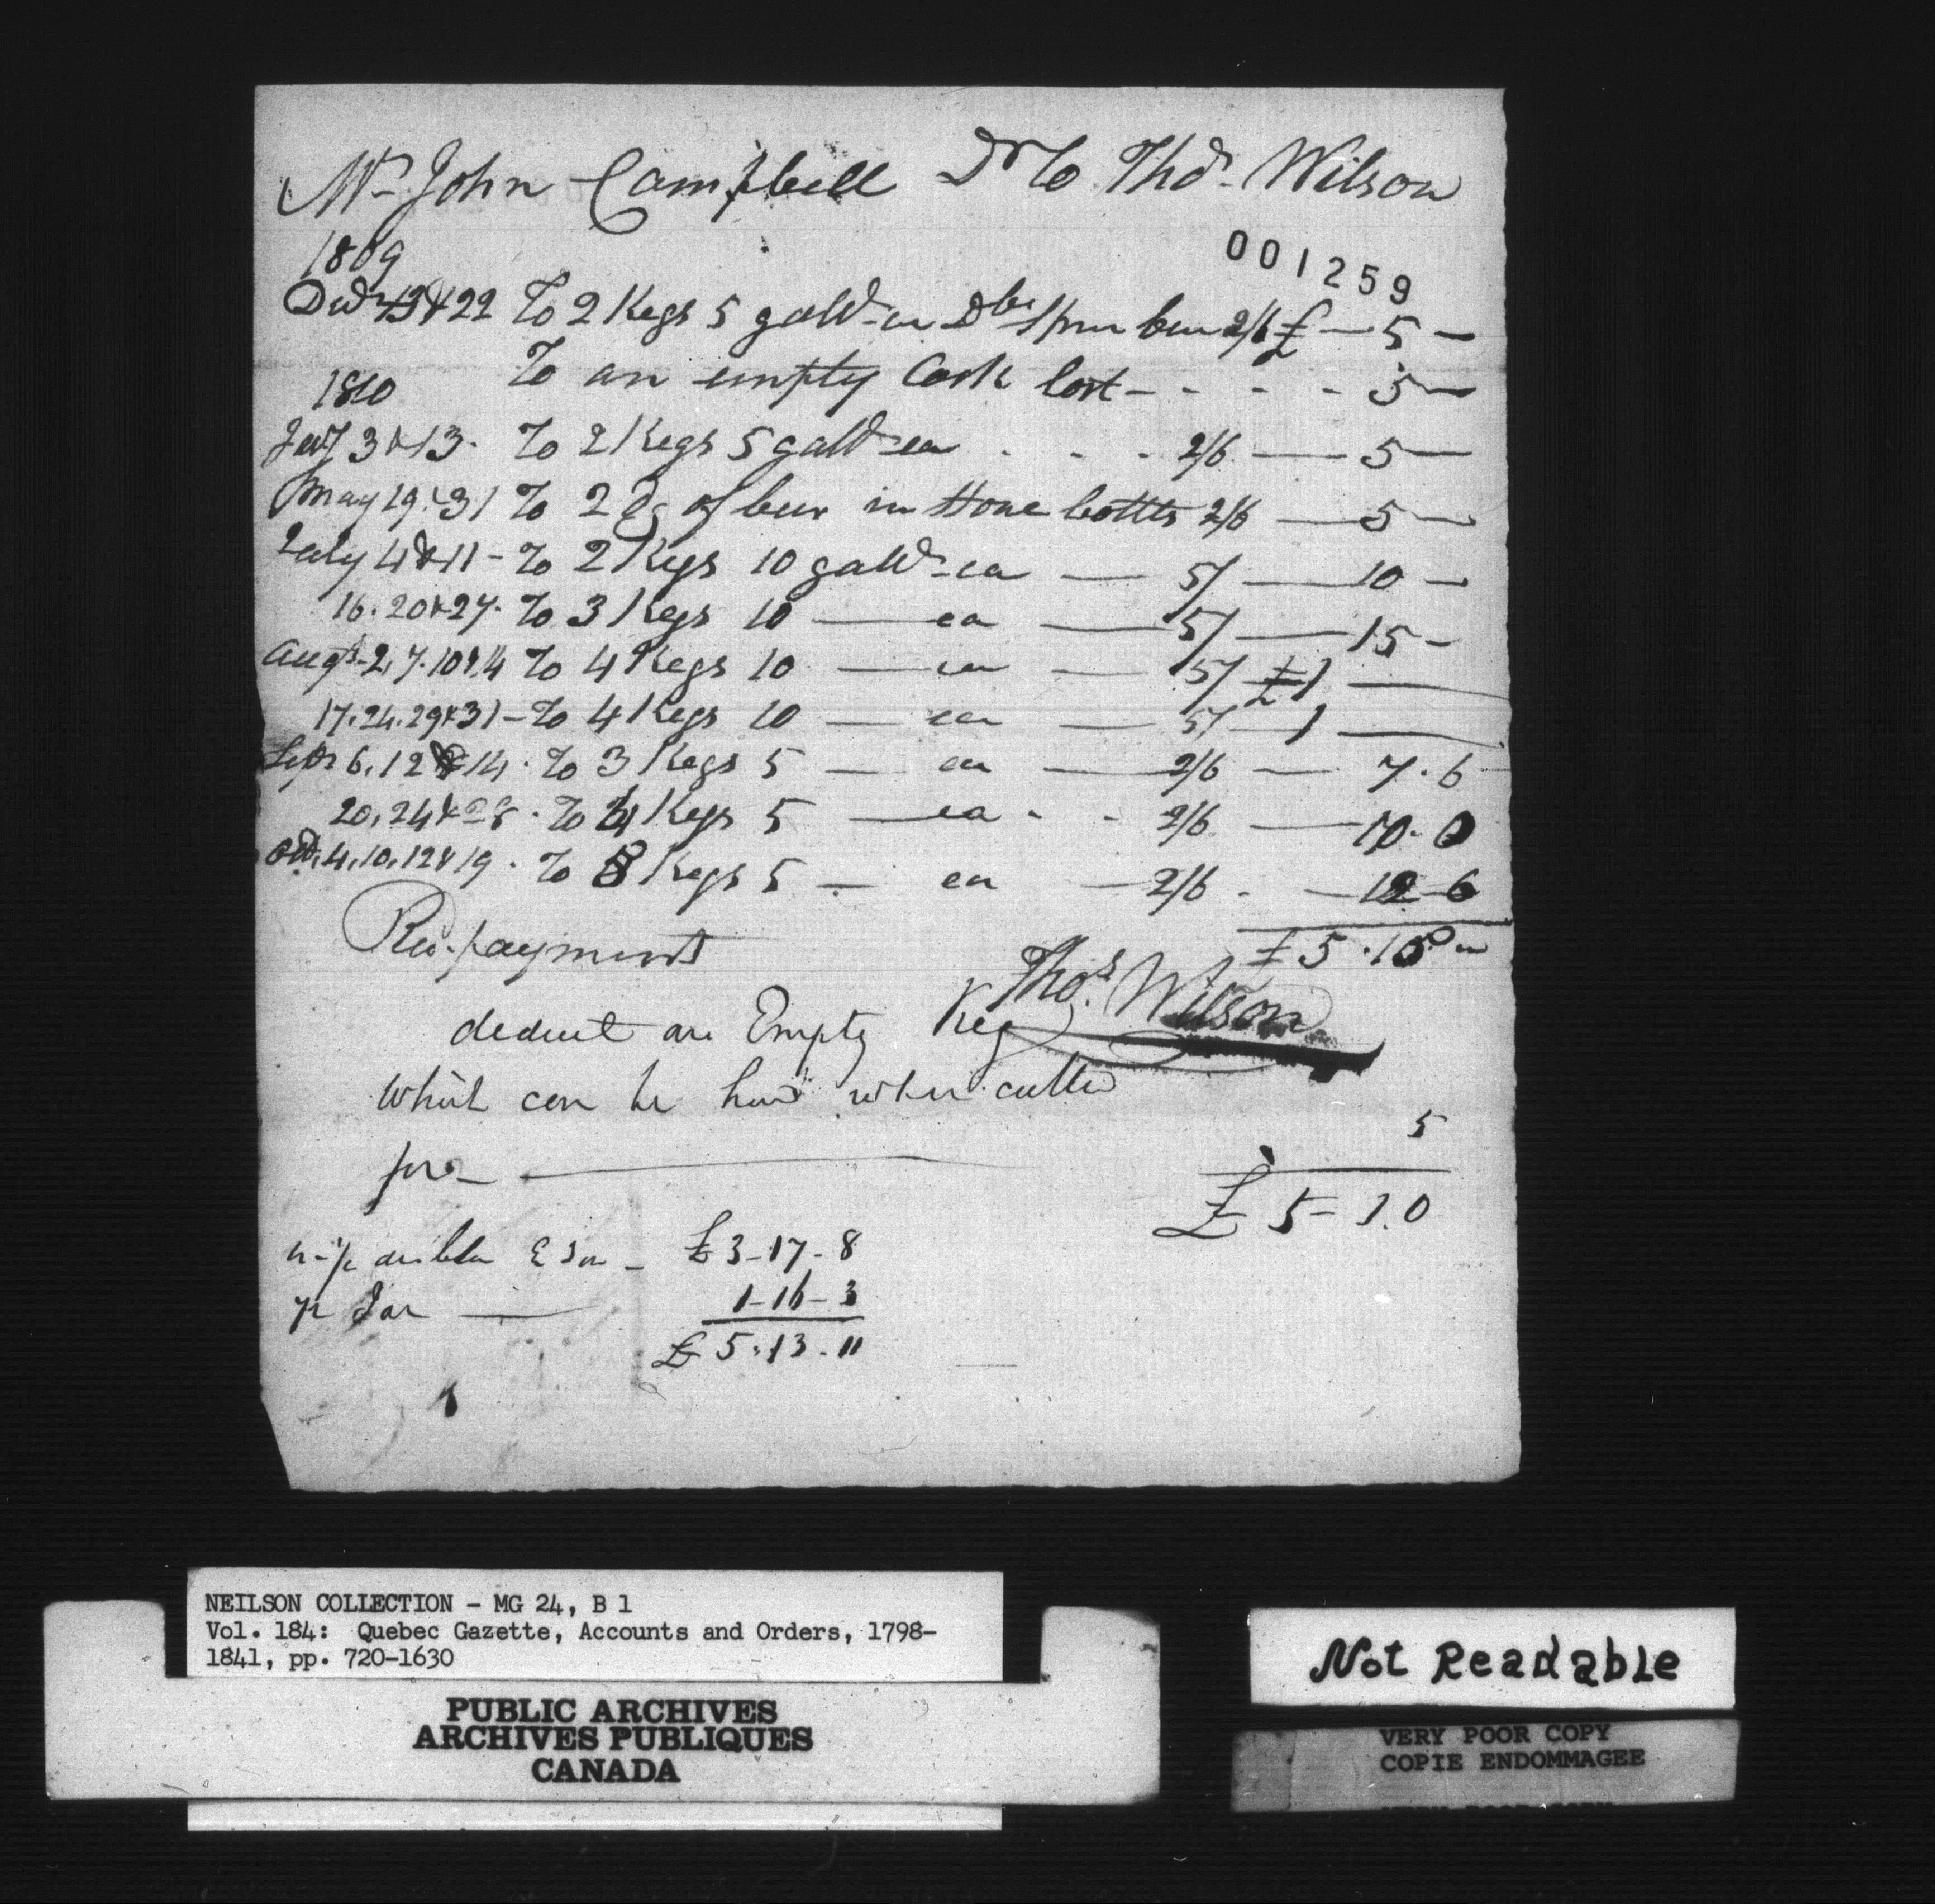 Mr John Campbell Dr to Thos. Wilson
1809
001259
Decr 13 & 22 To 2 Kegs 5 galls ea Dble Spru beer 2/6 £ — 5 —
To an empty Cask lost - - - - 5 —
1810
Jany 3 & 13. To 2 Kegs 5 galls ea . . . 2/6 — 5 —
May 19 & 31 To 2 Dz of beer in stone bottles 2/6 — 5 —
July 4 & 11 - To 2 Kegs 10 galls ea — 5/ — 10 —
16. 20 & 27. To 3 Kegs 10 — ea — 5/ — 15 -
Augst 2, 7. 10 & 14 To 4 Kegs 10 — ea — 5/ £1 —
17. 24. 29 & 31 - To 4 Kegs 10 — ea — 5/ — 1 —
Sepr 6, 12 & 14. To 3 Kegs 5 — ea — 2/6 — 7. 6
20, 24 & 28. To 4 Kegs 5 — ea - - 2/6 — 10. 0
Oct. 4, 10, 12 & 19. To Kegs 5 — ea — 2/6 . — 12 - 6
£ 5. 15
Rec. payment
Thos. Wilson
deduct an Empty Keg
which can be had when called
5
for —
£ 5 = 10
£ 3 - 17 - 8
1 - 16 - 3
£ 5. 13. 11
NEILSON COLLECTION - MG 24, B 1
Vol. 184: Quebec Gazette, Accounts and Orders, 1798-
1841, pp. 720-1630
PUBLIC ARCHIVES
ARCHIVES PUBLIQUES
CANADA
Not Readable
VERY POOR COPY
COPIE ENDOMMAGEE